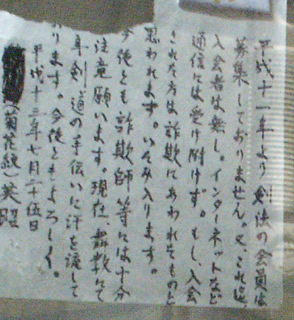 平成十一年より剣侠の会員は
募集しておりません。又、これ迄
入会者は無し。インターネットなど
通信には受け附けず。もし、入会
された方は詐欺にあわれたものと
思われます。いたみ入ります。
今後とも詐欺師等には十分
注意願います。現在、
年、剣道の手伝いに汗を流して
おります。今後ともよろしく。
平成十三年七月二十五日
(菊花紋)英昭